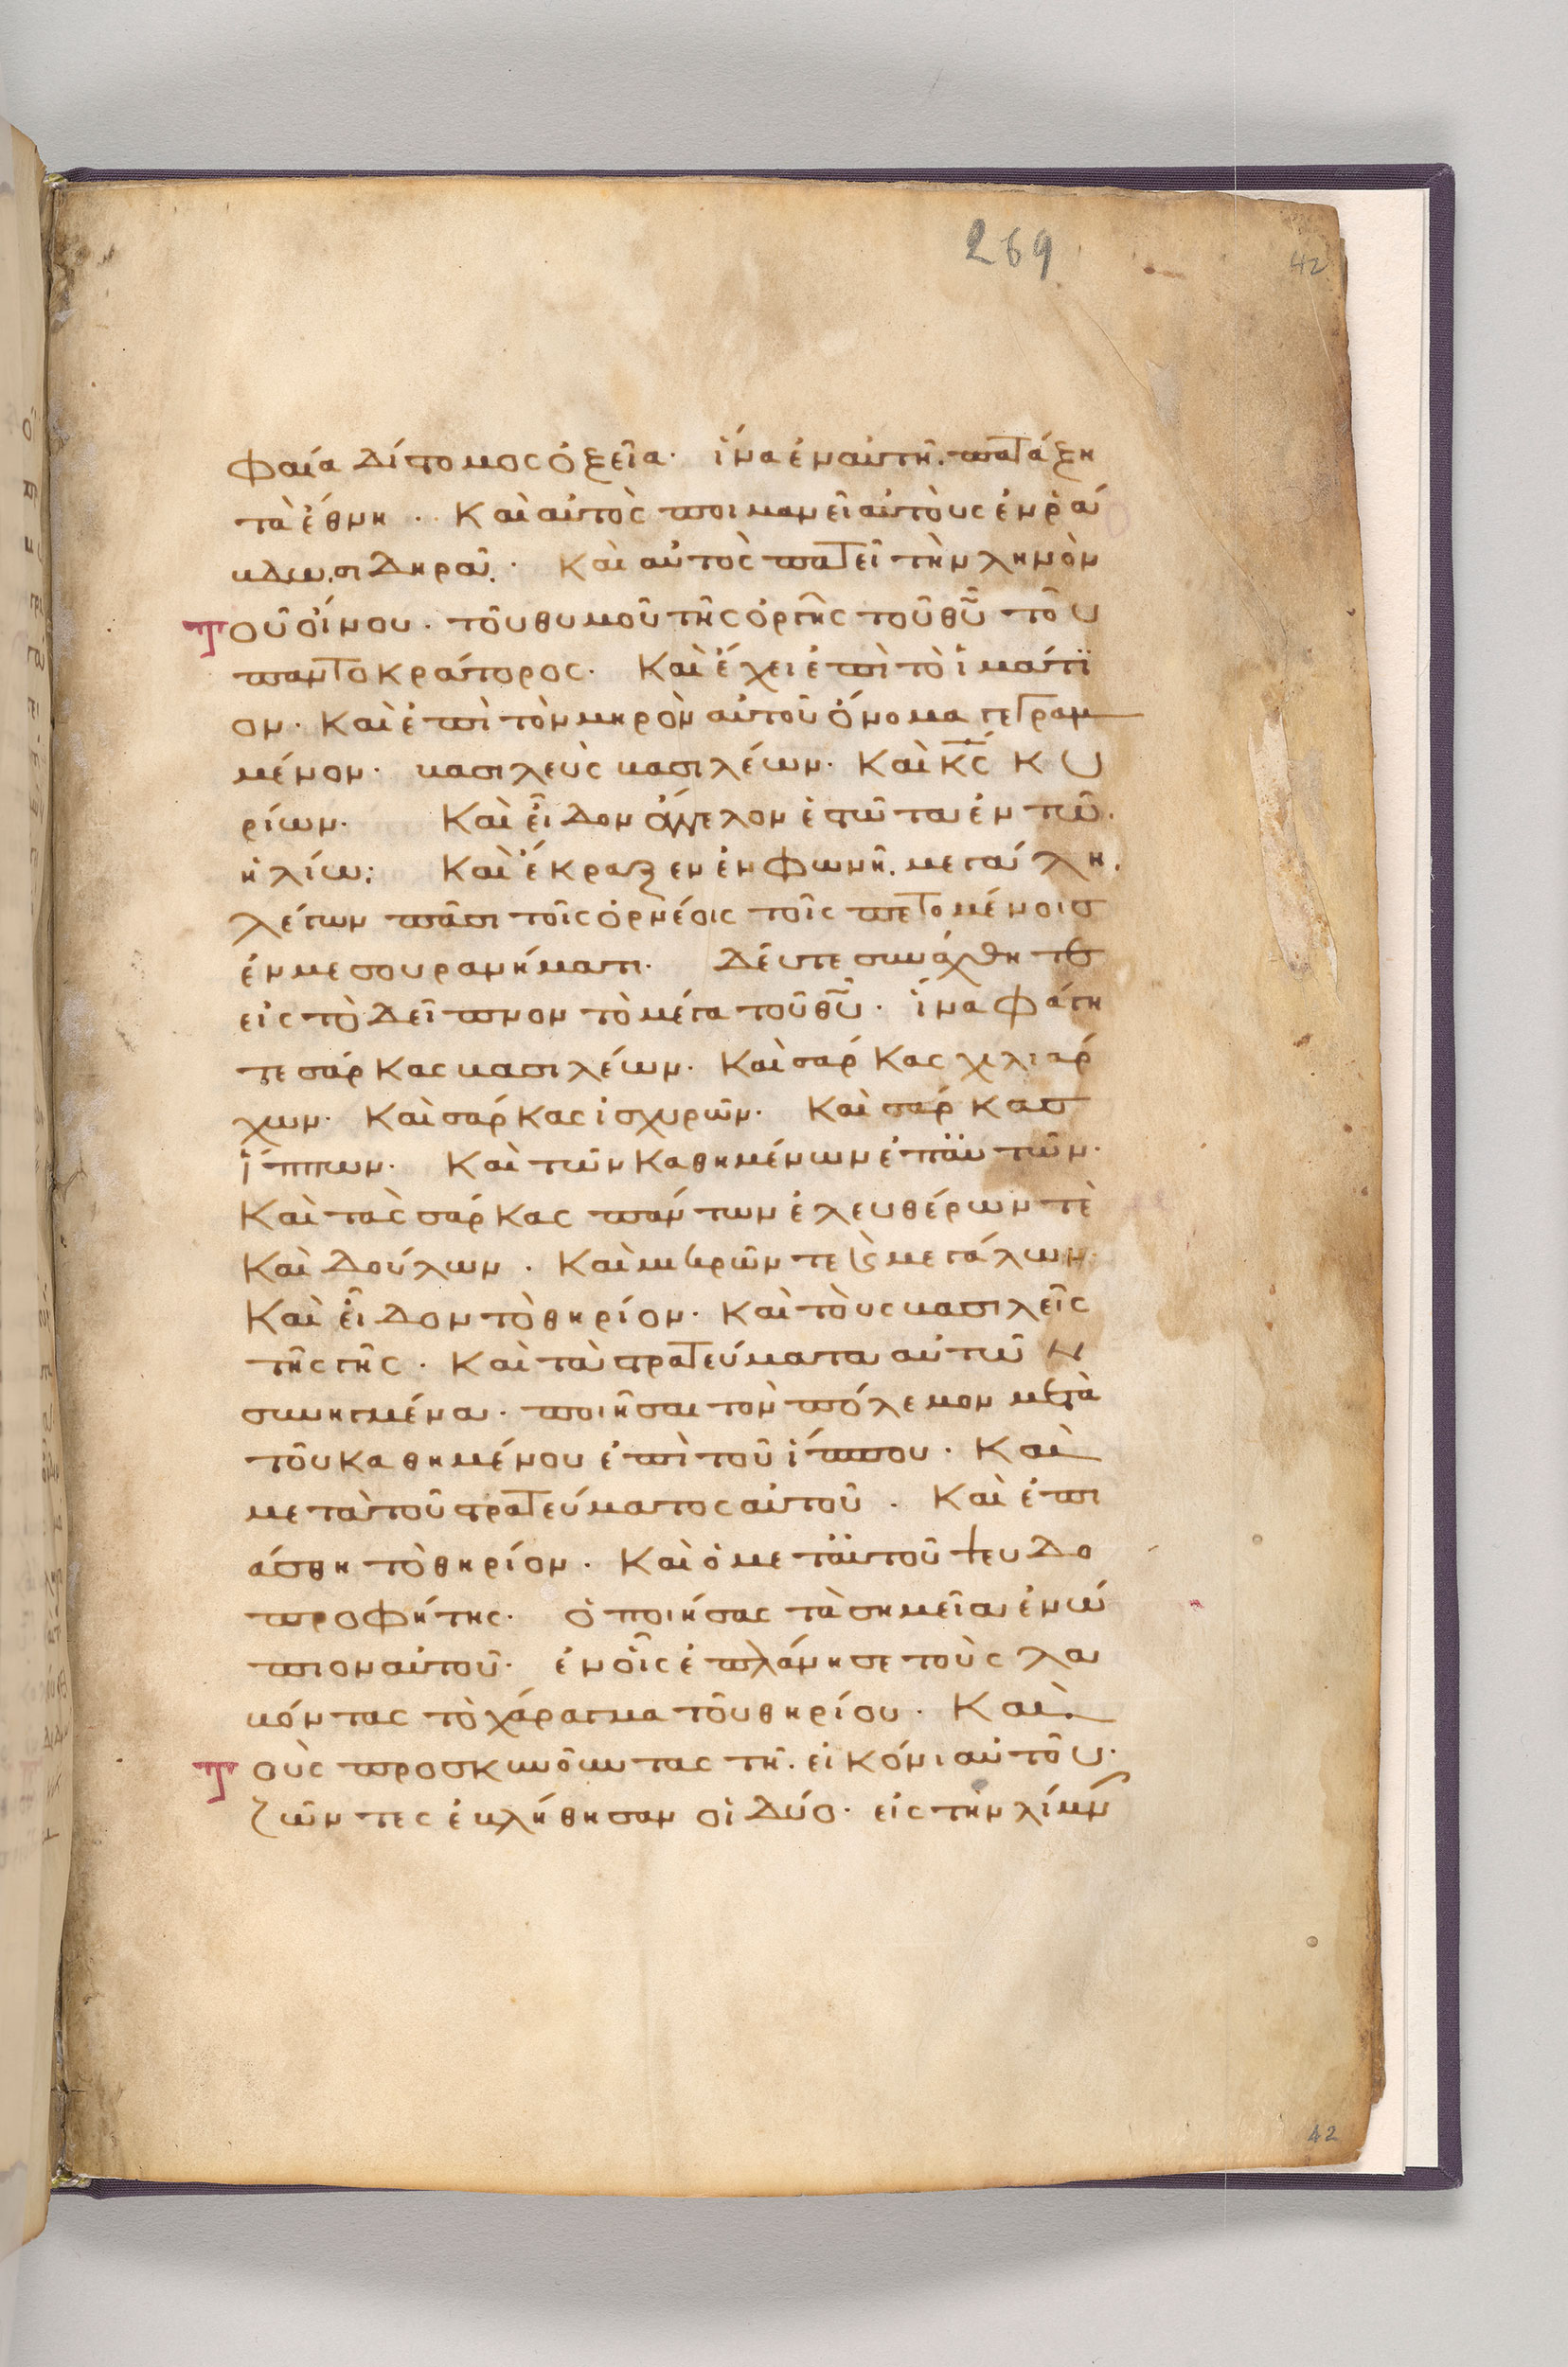 269
42
φαία δίστομος ὀξεῖα· ἵνα ἐν αὐτῆ. πατάξη
τὰ ἔθνη · Καὶ αὐτὸς ποιμανεῖ αὐτοὺς ἐν ῥά
βδω. σιδηρᾶ. · Καὶ αὐτὸς πατεῖ τὴν ληνὸν
Τοῦ οἴνου · τοῦ θυμοῦ τῆς ὀργῆς τοῦ θῦ τοῦ
παντοκράτορος· Καὶ ἔχει ἐπὶ τὸ ἱμάτι
ον· Καὶ ἐπὶ τὸν μηρὸν αὐτοῦ ὄνομα γεγραμ
μένον· βασιλεὺς βασιλέων· Καὶ κς κυ
ρίων· Καὶ εἶδον ἄγγελον ἑστῶτα ἐν τῶ.
ἡλίω: Καὶ ἔκραξεν ἐν φωνῆ. μεγάλη.
λέγων πᾶσι τοῖς ὀρνέοις τοῖς πετομένοις
ἐν μεσουρανήματι· Δεῦτε συνάχθητε
εἰς τὸ δεῖπνον τὸ μέγα τοῦ θῦ · ἵνα φάγη
τε σάρκας βασιλέων· Καὶ σάρκας χιλιάρ
χων· Καὶ σάρκας ἰσχυρῶν· Καὶ σάρκας
ἵππων· Καὶ τῶν καθημένων ἐπ αὐτῶν·
Καὶ τὰς σάρκας πάντων ἐλευθέρων τὲ
Καὶ δούλων · Καὶ μικρῶν τε ϗ μεγάλων·
Καὶ εἶδον τὸ θηρίον· Καὶ τοὺς βασιλεῖς
τῆς γῆς · Καὶ τὰ στρατεύματα αὐτῶν
συνηγμένα · ποιῆσαι τὸν πόλεμον μετὰ
τοῦ καθημένου ἐπὶ τοῦ ἵππου · Καὶ
μετὰ τοῦ στρατεύματος αὐτοῦ · Καὶ ἐπι
άσθη τὸ θηρίον · Καὶ ὁ μετ αὐτοῦ ψευδο
προφήτης· ὁ ποιήσας τὰ σημεῖα ἐνώ
πιον αὐτοῦ· ἐν οἷς ἐπλάνησε τοὺς λα
βόντας τὸ χάραγμα τοῦ θηρίου · Καὶ
Τοὺς προσκυνοῦντας τῆ. εἰκόνι αὐτοῦ·
ζῶντες ἐβλήθησαν οἱ δύο· εἰς τὴν λίμν
42